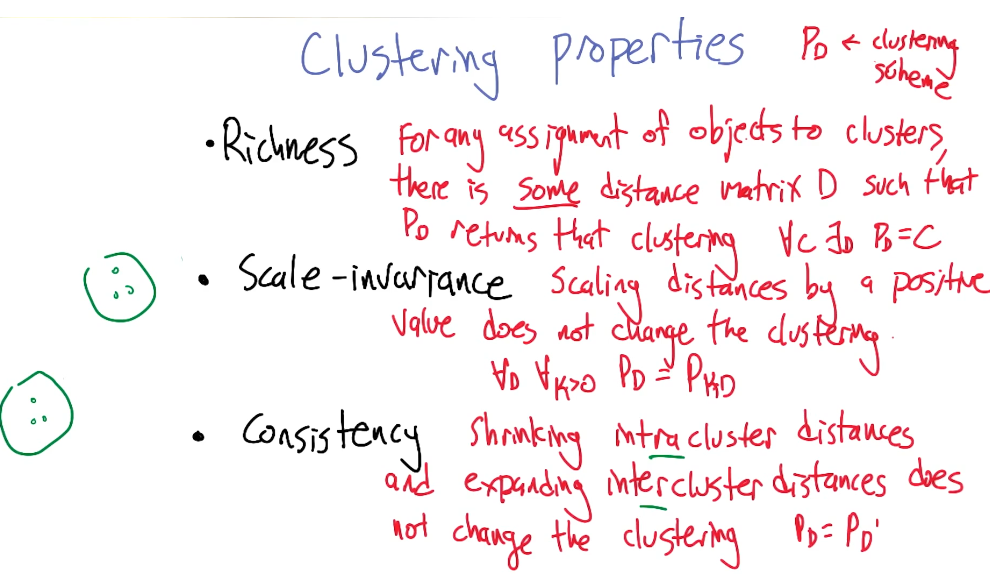 Clustering properties P_D ← clustering
scheme
• Richness For any assignment of objects to clusters,
there is some distance matrix D such that
P_D returns that clustering ∀c ∃_D P_D = C
• Scale-invariance Scaling distances by a positive
value does not change the clustering.
∀_D ∀_K>0 P_D = P_KD
• Consistency Shrinking intracluster distances
and expanding intercluster distances does
not change the clustering P_D = P_D'